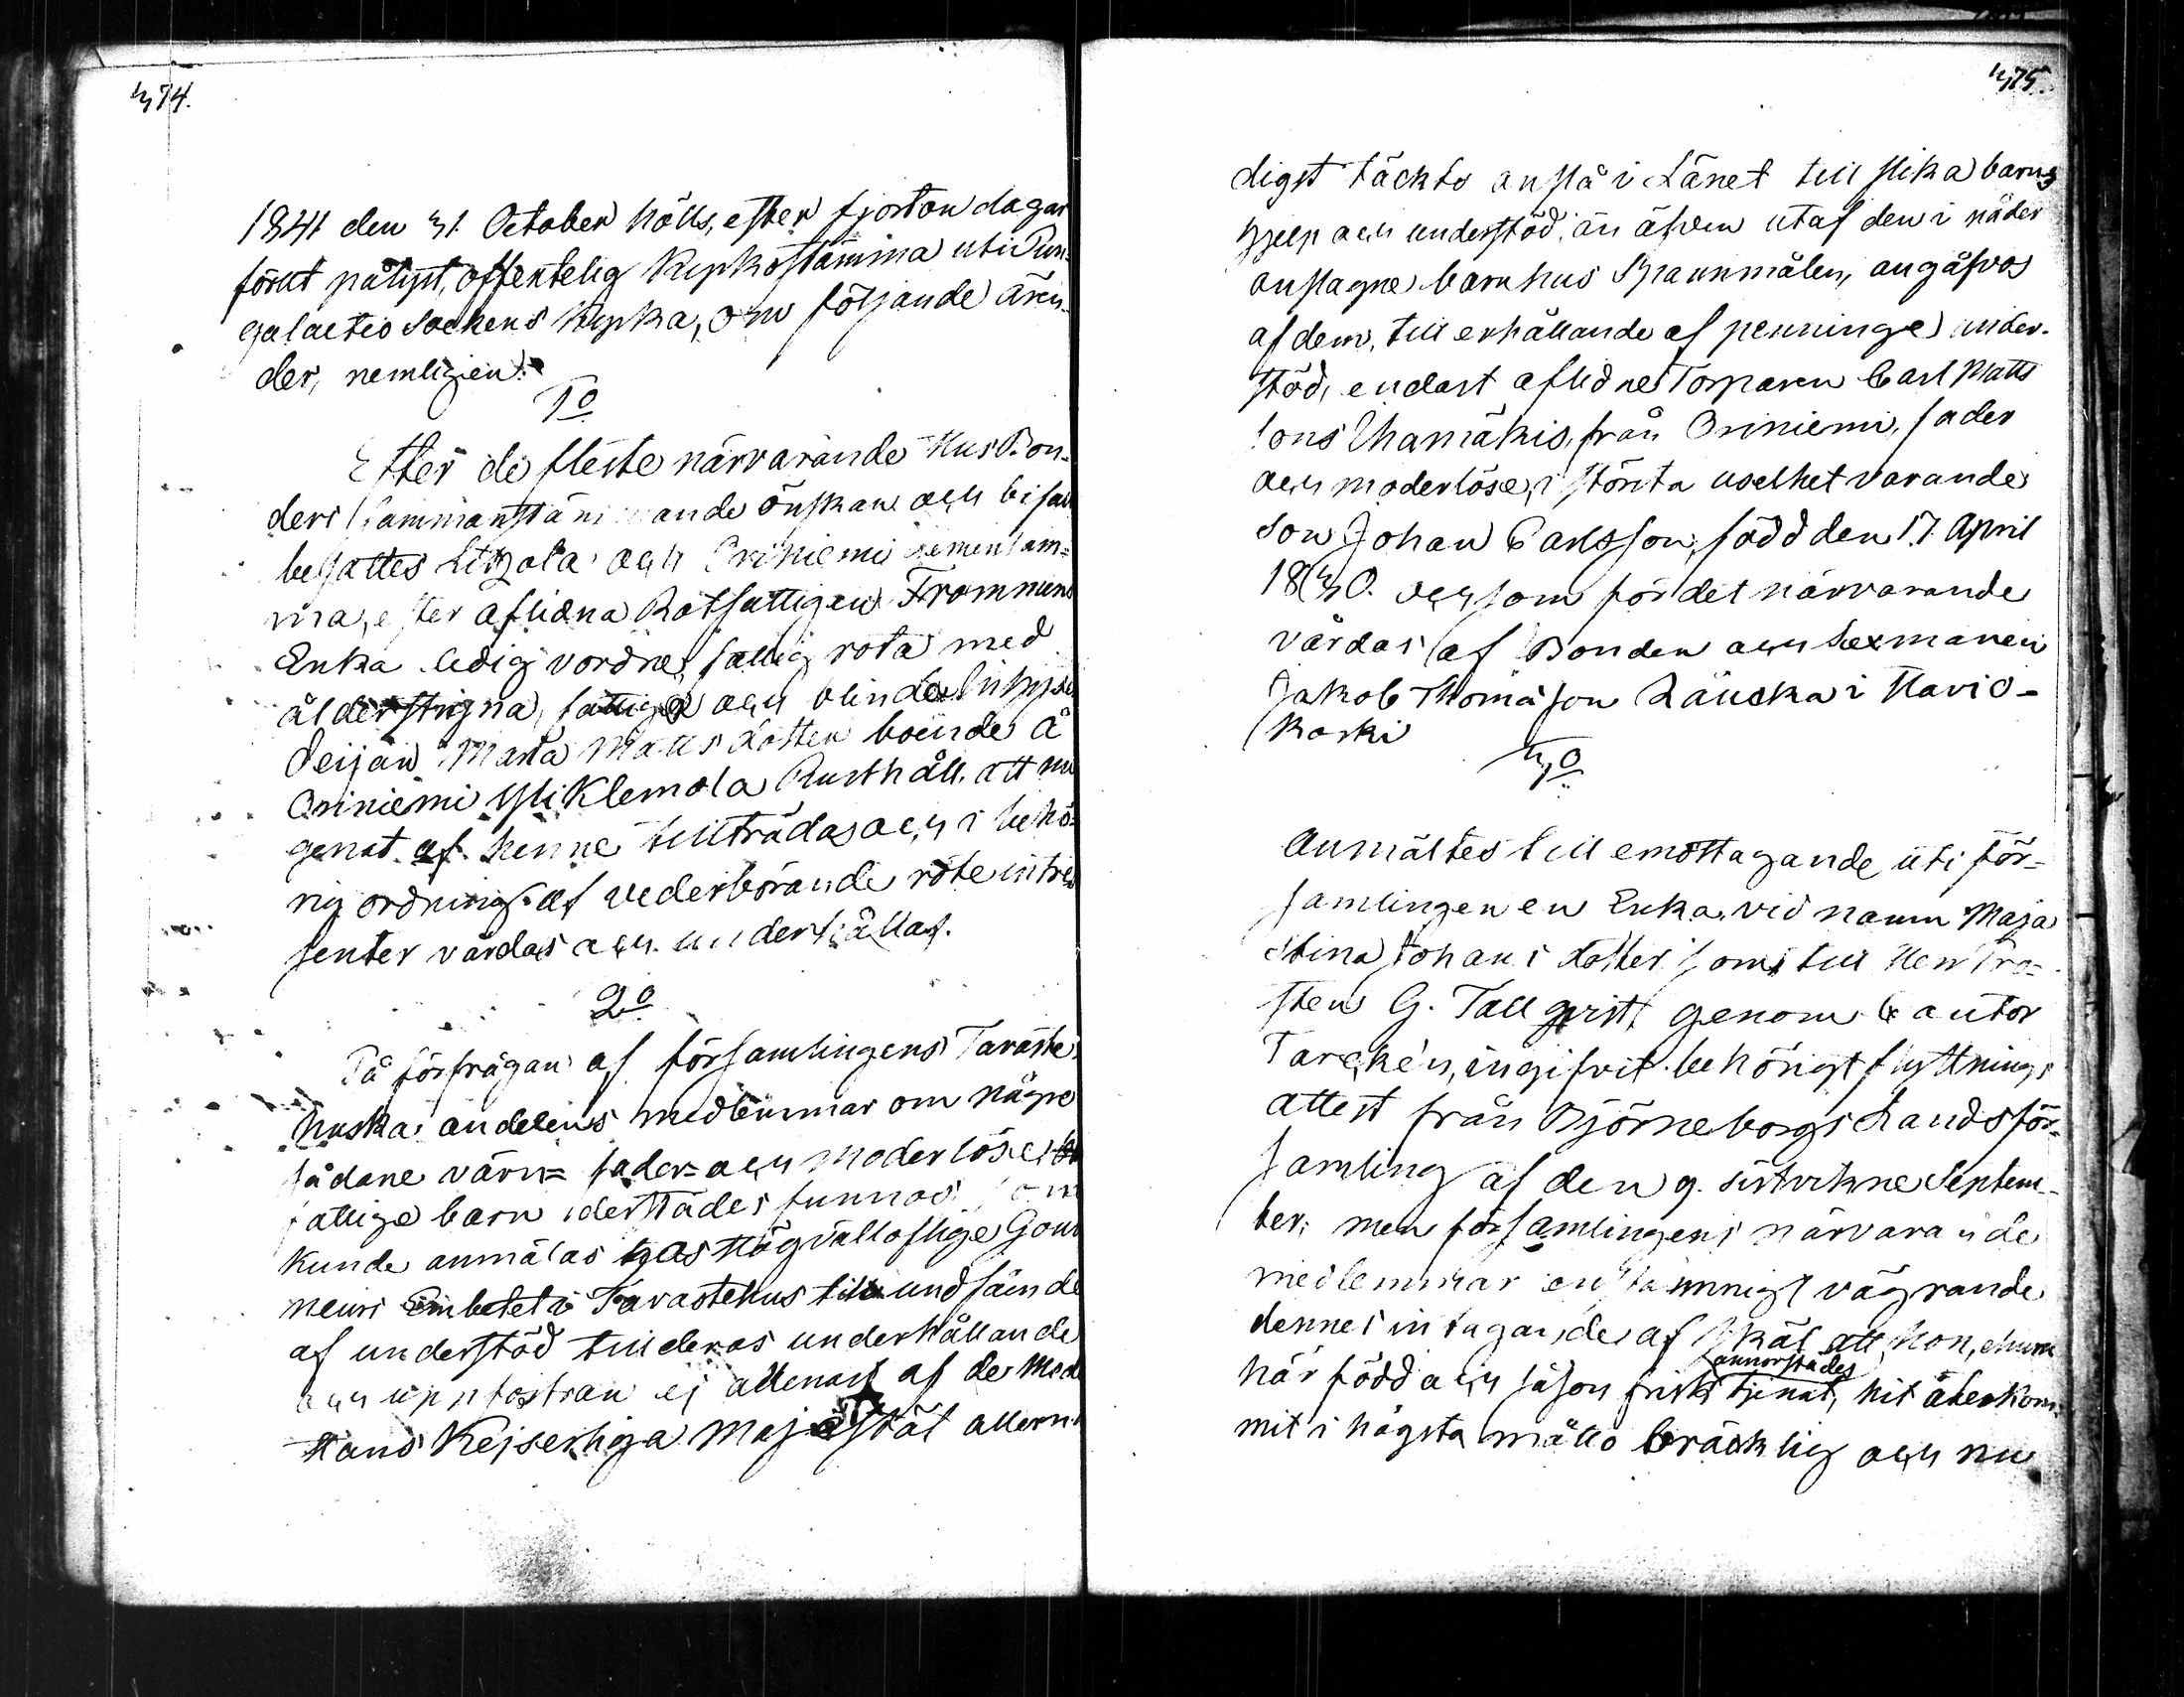 374.
1841 den 31 October hölls, efter fjorton dagar
förut pålyst, offentelig Kyrkostämma uti Pun-
galaitio Sockens Kyrka, om följande ären-
der, nemligen:
1o
Efter de fleste närvarande HusBon-
ders sammanstämmande önskan och bifall
besattes Litzola och Oriniemi gemensam-
ma, efter aflidna Rotfattigen Frommens
Enka ledig vordne, fattig rota med
ålderstigna, fattiga och blinda
Marta Matts dotter boende å
Oriniemi Yli Klemola Rusthåll, att nu
genast af henne tillträdas och i behö-
rig ordning af vederbörande rote intres-
senter vårdas och underhållas.
2o
På förfrågan af församlingens Tavaste
huska andelens medlemmar om någre
sådane värn= fader= och moderlöse
fattige barn derstädes funnos, som
kunde anmälas hos Högvälloflige Gouver-
neurs Embetet i Tavastehus till undfående
af understöd till deras underhållande
och uppfostran ej allenast af de Medel
Hans Kejserliga Majestät allernå-
375.
digst täckts anslå i Länet till slika barns
hjelp och understöd, än äfven utaf den i nåder
anslagne barnhus Spannmålen, angåfvos
af dem, till erhållande af penninge under-
stöd, endast aflidne Torparen Carl Matts
sons Uhamäkis, från Oriniemi, fader
och moderlöse, i största uselhet varande
son Johan Carlsson, född den 17 April
1830. och som för det närvarande
vårdas af Bonden och Sexmannen
Jakob Thomasson Läuska i Havio-
koski
3o
Anmältes till emottagande uti för-
samlingen en Enka, vid namn Maja
Stina Johans dotter, som till Herr Pro-
sten G. Tallqvist, genom Cantor
ingifvit behörigt flyttnings
attest från Björneborgs Landsför-
samling af den 9. sistvikne Septem-
ber; men församlingens närvarande
medlemmar enstämmigt vägrande
dennes intagande, af skäl att hon, ehuru
annorstädes
här född och såson frisk tjenat, hit återkom-
mit i högsta måtto bräcklig och nu